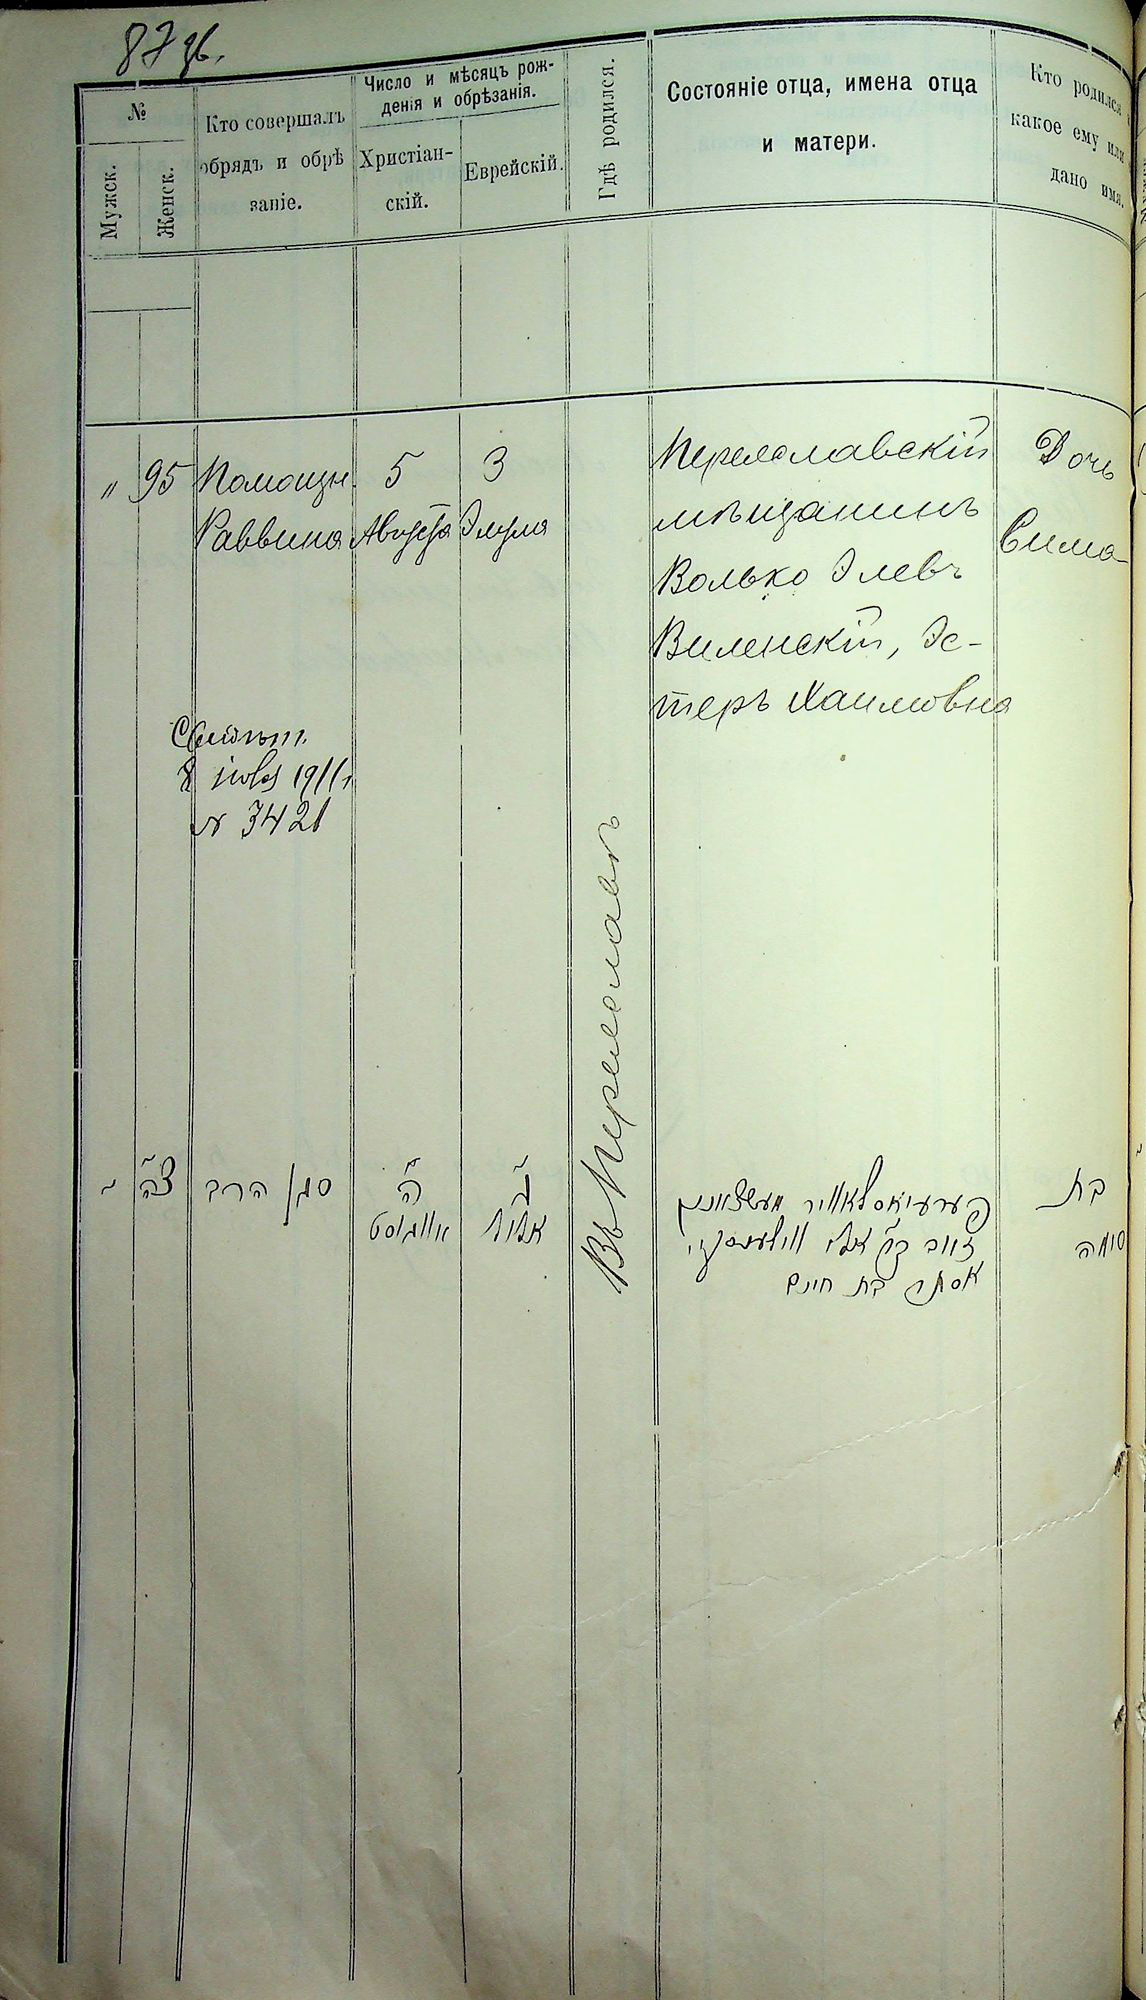 87 об.
№
Мужск.
Женск.
Кто совершалъ
обрядъ и обрѣ
заніе.
Число и мѣсяцъ рож-
денія и обрѣзанія.
Христіан-
скій.
Еврейскій.
Гдѣ родился.
Состояніе отца, имена отца
и матери.
Кто родился и
какое ему или
дано имя.
" 95 Помощн. 5 3
Раввина Августа Элула
Переяславскій
мѣщанинъ
Волько Элевъ
Виленскій, Эс-
теръ Хаимовна
Дочь
Сима
8 1911 г.
№ 3421
Въ Переяславѣ
צ״ה סגן הרב
ה׳
אויגוסט
ג׳
אלול
פערעיאסלאוויר מעשצאנין
זאב בן אלי ווילענסקיי
אסתר בת חיים
בת
סימה